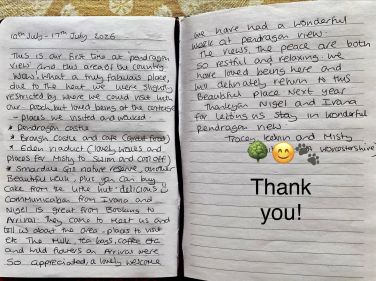 10th July - 17th July 2026
This is our first time at pendragon
view and this area of the country
Wow! What a truly fabulous place,
due to the heat we were slightly
restricted by where we could visit with
our pooch, but loved being at the
- places we visited and walked
* Pendragon castle
* Brough Castle and cafe (great food)
* Eden Viaduct (lovely walks and
places for Misty to swim and cool off)
* Smardale Gill nature reserve, another
Beautiful walk, plus you can buy
cake from the little hut - delicious
Communication from Ivana and
Nigel is great from Booking to
Arrival. They came to meet us and
tell us about the area - places to visit
etc The Milk, tea bags, coffee etc
and wild flowers on Arrival were
so appreciated, a lovely welcome
We have had a wonderful
week at pendragon view.
The views, the peace are both
so restful and relaxing. We
have loved being here and
will definately return to this
Beautiful place Next year
Thankyou Nigel and Ivana
for letting us stay in wonderful
pendragon view
Tracey and Misty
Worcestershire
Thank
you!